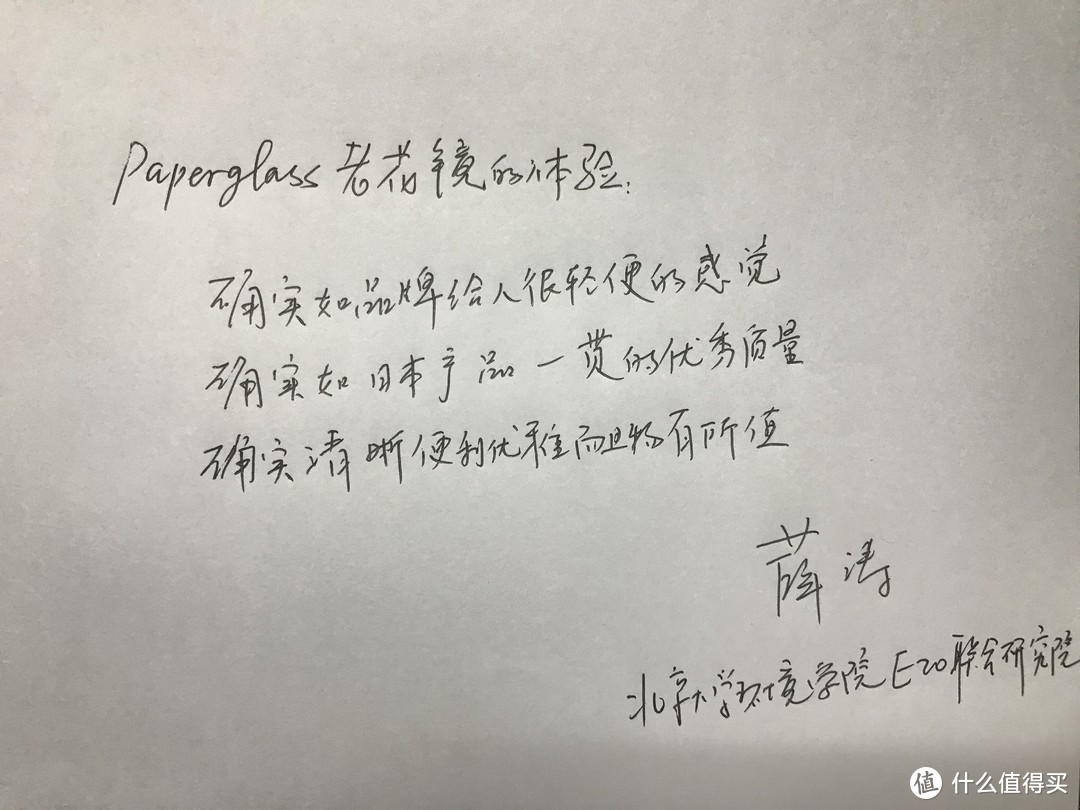 Paperglass老花镜的体验:
确实如品牌给人很轻便的感觉
确实如日本产品一贯的优秀质量
确实清晰便利优雅而且物有所值
薛涛
北京大学环境学院E20联合研究院
值 什么值得买